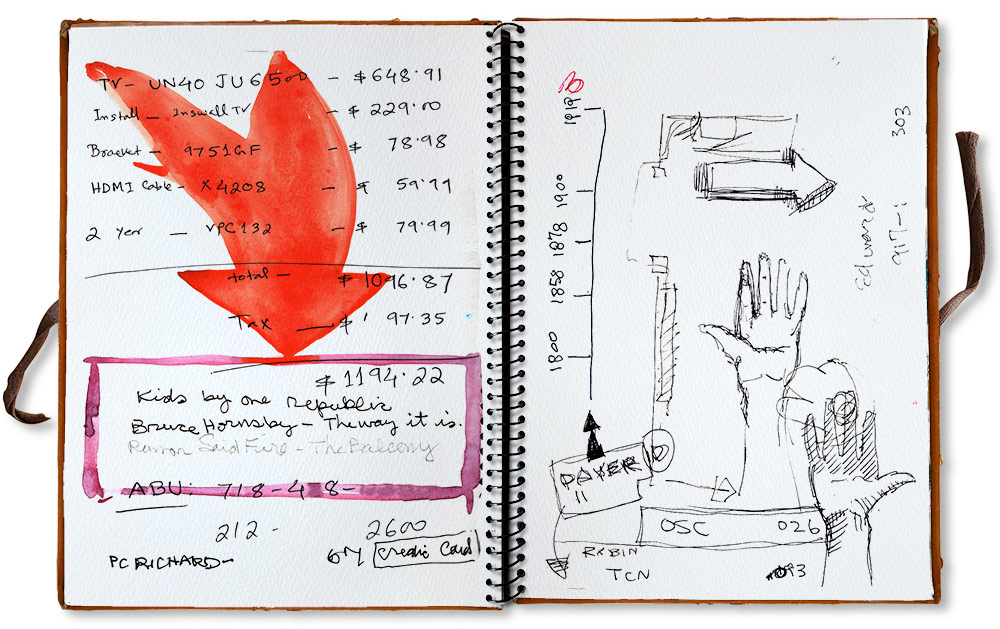 TV - UN40 JU6500 - $648.91
Install - Inswall TV - $229.00
Bracket - 9751GF - $ 78.98
HDMI Cable - X4208 - $ 59.99
2 year - VPC132 - $ 79.99
total - $1096.87
Tax - $ 97.35
$1194.22
Kids by one Republic
Bruce Hornsby - The way it is.
Ramon Said Fire - The Balcony
ABU: 718-4 8-
212 - 2600
PC RICHARD - Credit Card
1917
1900
1878
1858
1800
303
917-
OSC 026
TCN 93